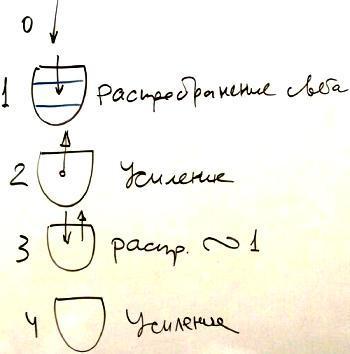 0
1 распробранение света
2 Усиление
3 распр. ~ 1
4 Усиление